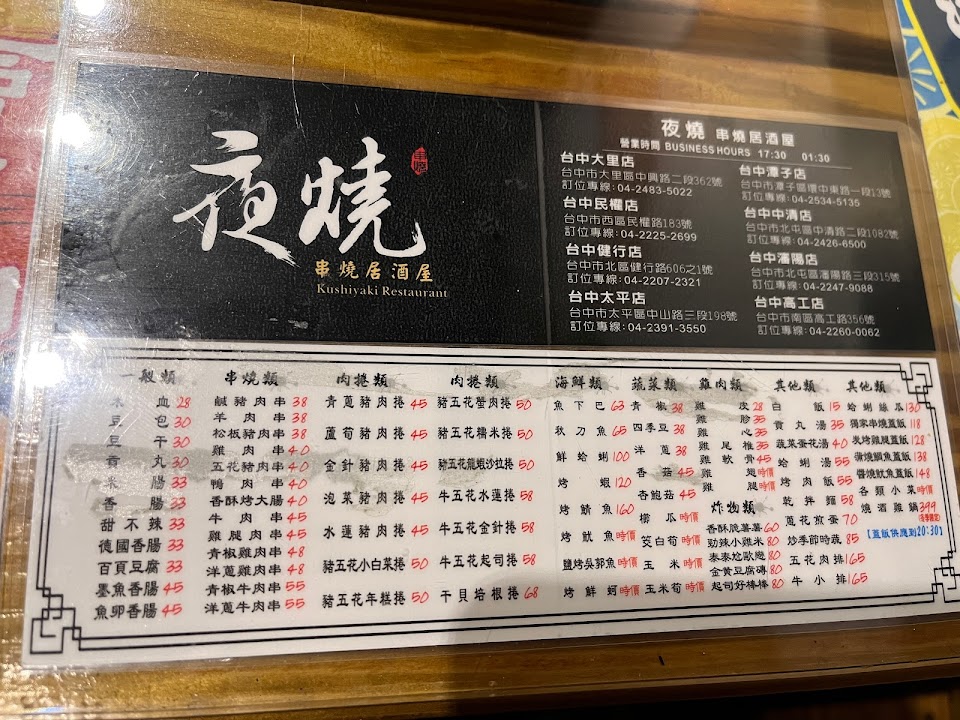 夜燒
串燒居酒屋
Kushiyaki Restaurant
夜燒 串燒居酒屋
營業時間 BUSINESS HOURS 17:30 01:30
台中大里店
台中市大里區中興路二段362號
訂位專線:04-2483-5022
台中民權店
台中市西區民權路183號
訂位專線:04-2225-2699
台中健行店
台中市北區健行路606之1號
訂位專線:04-2207-2321
台中太平店
台中市太平區中山路三段198號
訂位專線:04-2391-3550
台中潭子店
台中市潭子區環中東路一段13號
訂位專線:04-2534-5135
台中中清店
台中市北屯區中清路二段1082號
訂位專線:04-2426-6500
台中瀋陽店
台中市北屯區瀋陽路三段315號
訂位專線:04-2247-9088
台中高工店
台中市南區高工路356號
訂位專線:04-2260-0062
一般類
米血 28
豆包 30
豆干 30
貢丸 30
米腸 33
香腸 33
甜不辣 33
德國香腸 33
百頁豆腐 33
墨魚香腸 45
魚卵香腸 45
串燒類
鹹豬肉串 38
羊肉串 38
松板豬肉串 38
雞肉串 40
五花豬肉串 40
鴨肉串 40
香酥烤大腸 40
牛肉串 45
雞腿肉串 45
青椒雞肉串 48
洋蔥雞肉串 48
青椒牛肉串 55
洋蔥牛肉串 55
肉捲類
青蔥豬肉捲 45
蘆筍豬肉捲 45
金針豬肉捲 45
泡菜豬肉捲 45
水蓮豬肉捲 45
豬五花小白菜捲 50
豬五花年糕捲 50
肉捲類
豬五花蟹肉捲 50
豬五花糯米捲 50
豬五花龍蝦沙拉捲 50
牛五花水蓮捲 58
牛五花金針捲 58
牛五花起司捲 58
干貝培根捲 68
海鮮類
魚下巴 63
秋刀魚 65
鮮蛤蜊 100
烤蝦 120
烤鯖魚 160
烤魷魚 時價
鹽烤吳郭魚 時價
烤鮮蚵 時價
蔬菜類
青椒 38
四季豆 38
洋蔥 38
香菇 45
杏鮑菇 45
櫛瓜 時價
筊白筍 時價
玉米 時價
玉米筍 時價
雞肉類
雞皮 28
雞胗 35
雞心 35
雞尾椎 35
雞軟骨 45
雞翅 時價
雞腿 時價
炸物類
香酥脆薯薯 60
勁辣小雞米 80
泰泰尬歐遊 80
金黃豆腐磚 80
起司好棒棒 80
其他類
白飯 15
貢丸湯 35
蔬菜蛋花湯 40
蛤蜊湯 55
烤肉飯 55
乾拌麵 58
蔥花煎蛋 70
炒季節時蔬 85
五花肉排 165
牛小排 165
其他類
蛤蜊絲瓜 130
獨家串燒蓋飯 118
炭烤雞腿蓋飯 128
蒲燒鯛魚蓋飯 138
醬燒魷魚蓋飯 148
各類小菜 時價
燒酒雞鍋 399
(冬季限定)
【蓋飯供應到20:30】